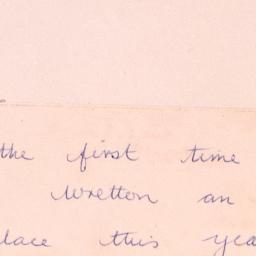 the first time
Wretton an
lace this yea